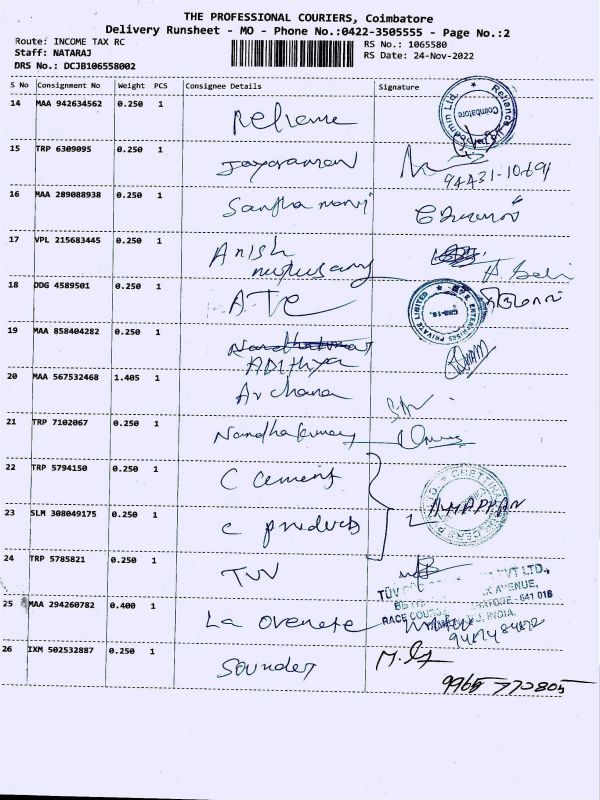 THE PROFESSIONAL COURIERS, Coimbatore
Delivery Runsheet - MO - Phone No.:0422-3505555 - Page No.:2
Route: INCOME TAX RC
RS No.: 1065580
Staff: NATARAJ
RS Date: 24-Nov-2022
DRS No.: DCJB106558002
S No Consignment No Weight PCS Consignee Details Signature
14 MAA 942634562 0.250 1 Reliance
Reliance
Coimbatore
15 TRP 6309095 0.250 1 Jayaraman
94431-10691
16 MAA 289088938 0.250 1 Santhamani
17 VPL 215683445 0.250 1 Anish
18 DDG 4589501 0.250 1 ATE
ENTERPRISES PRIVATE LIMITED
CBE-18.
19 MAA 858404282 0.250 1
Adithya
20 MAA 567532468 1.405 1 Archana
21 TRP 7102067 0.250 1 Nandhakumar
22 TRP 5794150 0.250 1 C cement
CHETTINAD
23 SLM 308049175 0.250 1 C products
24 TRP 5785821 0.250 1 TUV
TÜV PVT LTD.,
AVENUE,
RACE COURSE 641 018
INDIA.
25 MAA 294260782 0.400 1 La
26 IXM 502532887 0.250 1 Sounder